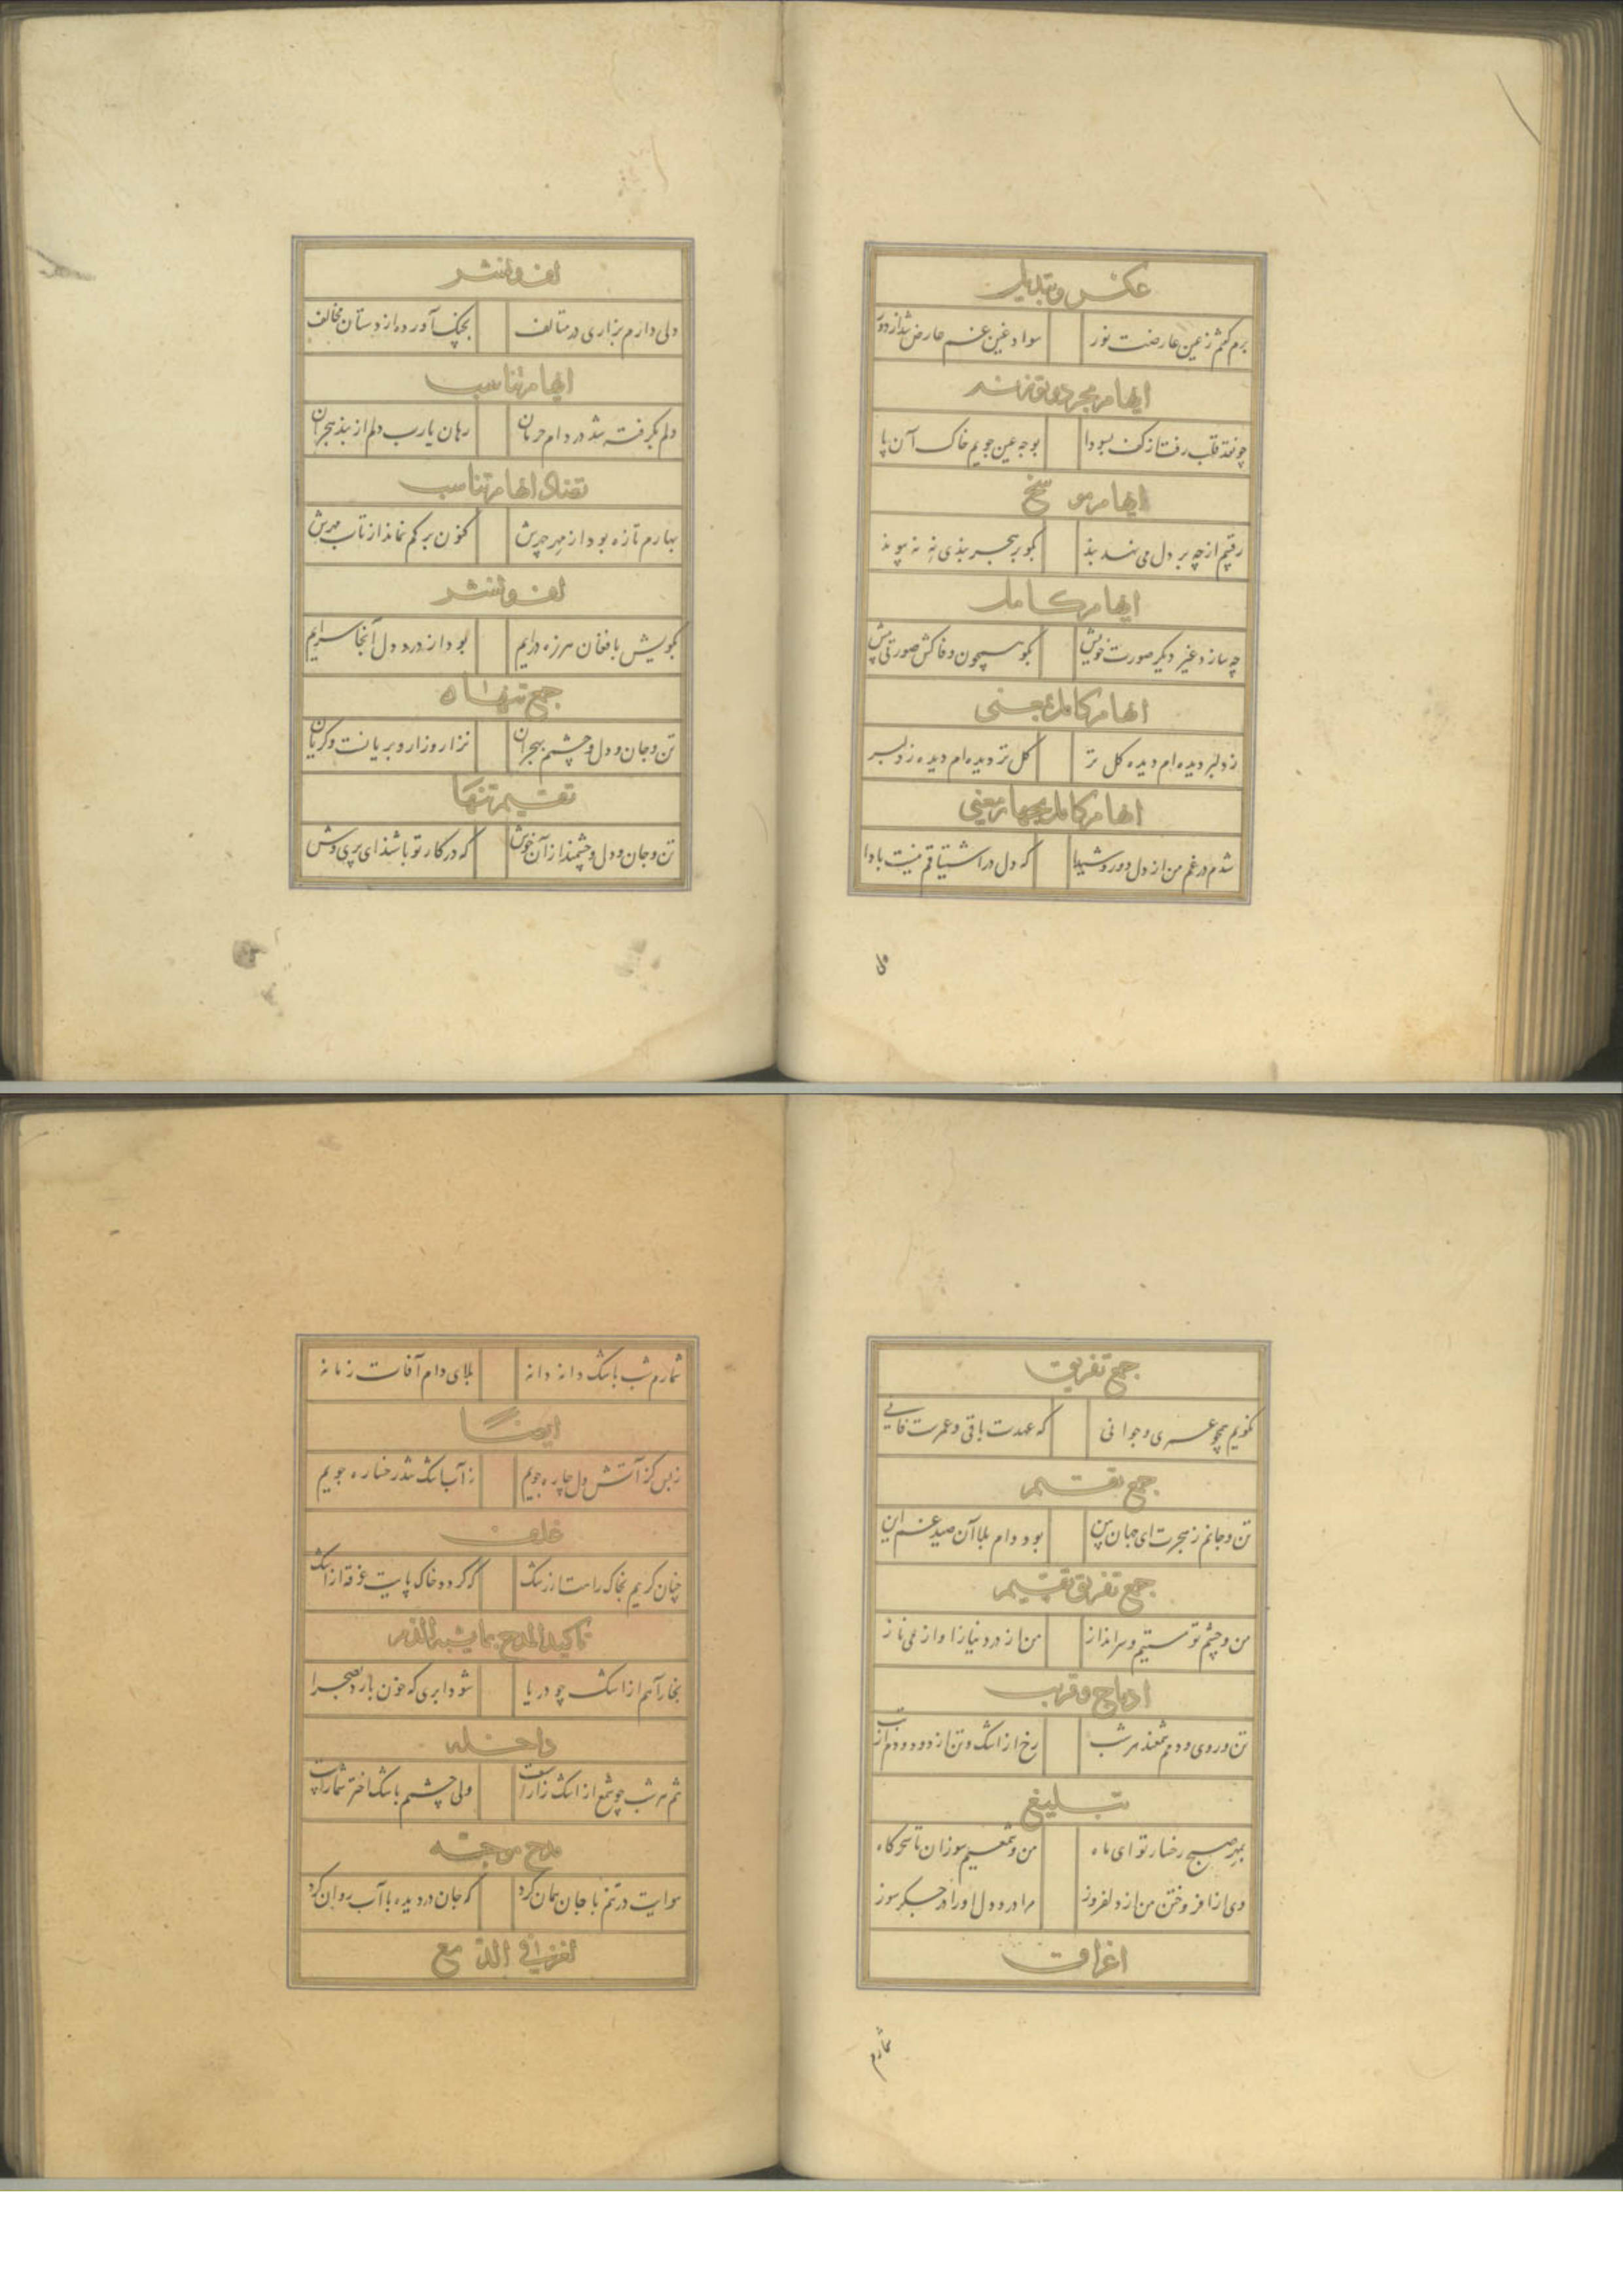 عکس و تبدیل
برم کم شد ز عین عارضت نور سواد عین غم عارض شد از دور
ایهام مجرد و توزنه
چو نقد قلب رفت از کف بسودا بوجه عین جویم خاک آن پا
ایهام موسخ
رقیم از چه بر دل می نهد بند بکو بر هجر بندی نه نه پیوند
ایهام کامل
چه سازد غیر دیگر صورت خویش بکو همچون وفا کش صورتی پیش
ایهام کامل بمعنی
ز دلبر دیده ام دیده کل تر کل تر دیده ام دیده ز دلبر
ایهام کامل بچهار معنی
شدم در غم من از دل دور و شیدا که دل در اشتیاقم نیست با وا
لف و نشر
دلی دارم بزاری در متالف بچنک آورده از دستان مخالف
ایهام تناسب
دلم بگرفته شد در دام حرمان رهان یارب دلم از بند هجران
تضاد ایهام تناسب
بهارم تازه بود از مهر چهرش کنون برکم نماند از تاب مهرش
لف و نشر
بکویش با فغان هرزه درایم بود از درد دل آنجا سرایم
جمع تنها
تن و جان و دل و چشم بهجران نزار و زار و بریانست و کریان
تقسیم تنها
تن و جان و دل و چشمند از آن خوش که در کار تو باشد ای پری وش
جمع تفریق
نکویم همچو عمری و جوانی که عهدت باقی و عمرت فانی
جمع تقسیم
تن و جانم ز هجرت ای جهان بین بود دام بلا آن صید غم این
جمع تفریق تقسیم
من و چشم تو مستیم و سرانداز من از درد نیاز او از می ناز
ادماج و قرب
تن و روی و دمم شمعند هر شب رخ از اشک و تن از دود و دم از تب
تبلیغ
بمهر صبح رخسار تو ای ماه من و شمعیم سوزان تا سحرگاه
وی از افروختن من از دلفروز مرا در دل او را در جگر سوز
اغراق
شمارم
شمارم شب باشک دانه دانه بلای دام آفات زمانه
ایضا
ز بس کز آتش دل چاره جویم ز آب اشک شد رخساره جویم
غلو
چنان کریم بخاک راهت از رشک که کردد خاک پایت غرقه از اشک
تاکید المدح بما یشبه الذم
بخار آهم از اشک چو دریا شود ابری که خون بارد بصحرا
داخله
تنم هر شب چو شمع از اشک زارست ولی چشمم باشک اختر شمارست
مدح موجه
هوایت در تنم با جان همان کرد که جان در دیده با آب روان کرد
لغز فی الدمع